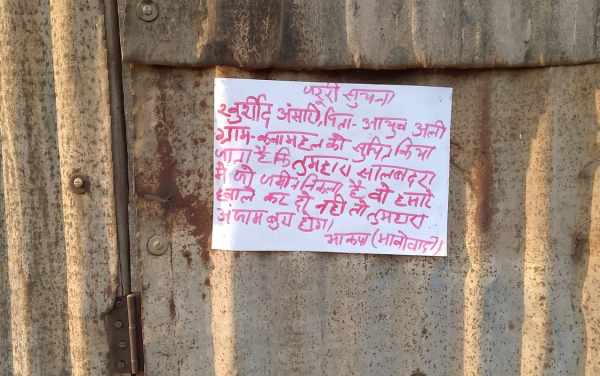 जरूरी सुचना
खुर्शीद अंसारी, पिता - आयुब अली
ग्राम - को सुचित किया
जाता है कि तुम्हारा सालबदरा
में जो जमीन निकला है, वो हमारे
हवाले कर दो नही तो तुम्हारा
अंजाम बुरा होगा।
भाकपा (माओवादी)